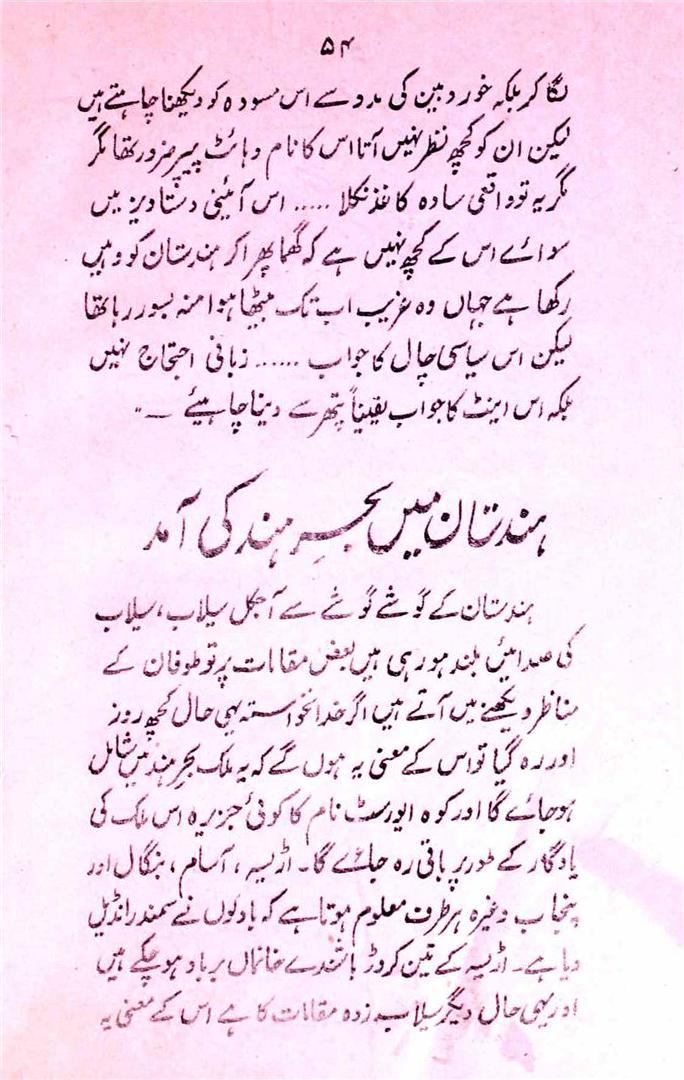 ۵۴
لگا کر بلکہ خوردبین کی مدد سے اس مسودہ کو دیکھنا چاہتے ہیں
لیکن ان کو کچھ نظر نہیں آتا اس کا نام وہائٹ پیپر ضرور تھا مگر
مگر یہ تو واقعی سادہ کاغذ نکلا ..... اس آئینی دستاویز میں
سوائے اس کے کچھ نہیں ہے کہ گھما پھرا کر ہندستان کو وہیں
رکھا ہے جہاں وہ غریب اب تک بیٹھا ہوا منہ بسور رہا تھا
لیکن اس سیاسی چال کا جواب ...... زبانی احتجاج نہیں
بلکہ اس اینٹ کا جواب یقیناً پتھر سے دینا چاہیئے ــ"
ہندستان میں بحرِ ہند کی آمد
ہندستان کے گوشے گوشے سے آجکل سیلاب، سیلاب
کی صدائیں بلند ہو رہی ہیں بعض مقامات پر تو طوفان کے
مناظر دیکھنے میں آتے ہیں اگر خدانخواستہ یہی حال کچھ روز
اور رہ گیا تو اس کے معنی یہ ہوں گے کہ یہ ملک بحرِ ہند میں شامل
ہو جائے گا اور کوہ ایورسٹ نام کا کوئی جزیرہ اس ملک کی
یادگار کے طور پر باقی رہ جائے گا۔ اڑیسہ، آسام، بنگال اور
پنجاب وغیرہ ہر طرف معلوم ہوتا ہے کہ بادلوں نے سمندر انڈیل
دیا ہے۔ اڑیسہ کے تین کروڑ باشندے خانماں برباد ہو چکے ہیں
اور یہی حال دیگر سیلاب زدہ مقامات کا ہے اس کے معنی یہ